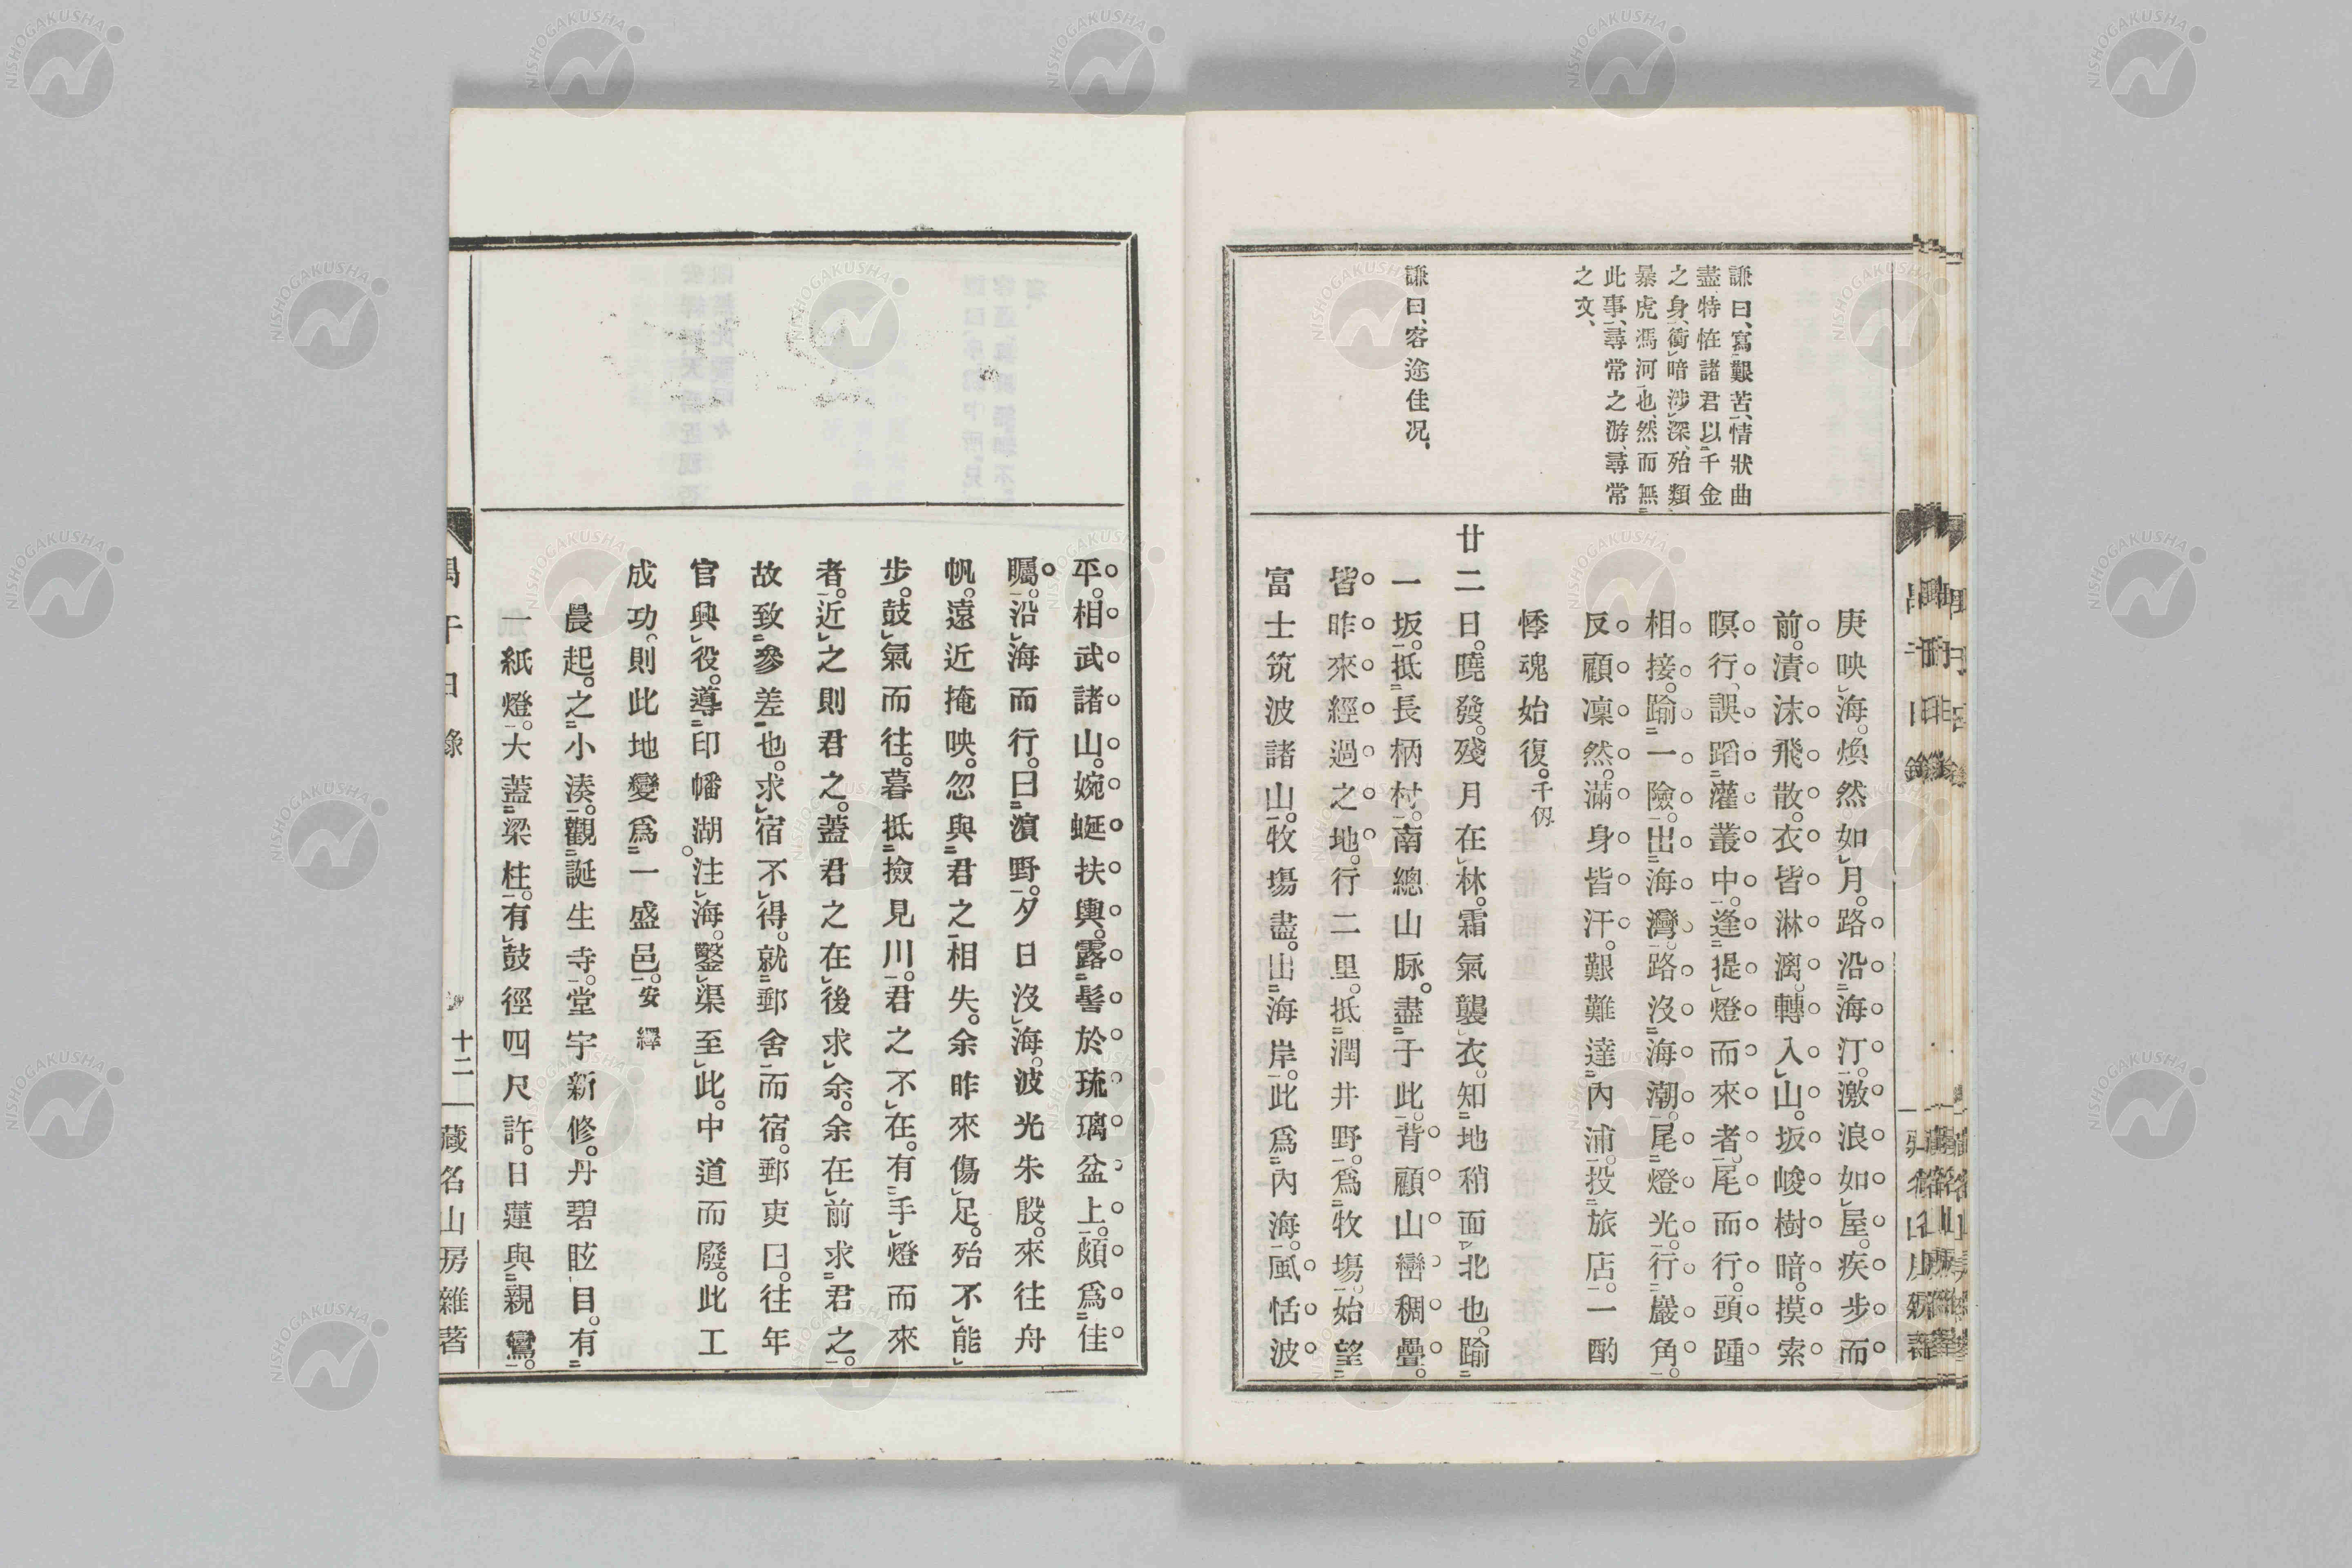 謙曰、寫艱苦、情狀曲
盡、特恠諸君以千金
之身、衝暗涉深、殆類
暴虎馮河也、然而無
此事、尋常之游、尋常
之文、
謙曰、客途佳况、
庚映海。煥然如月。路沿海汀。激浪如屋。疾步而
前。漬沫飛散。衣皆淋漓。轉入山。坂峻樹暗。摸索
暝行、誤蹈灌叢中。逢提燈而來者。尾而行。頭踵
相接。踰一險。出海灣。路沒海潮。尾燈光。行巖角。
反顧凜然。滿身皆汗。艱難達內浦。投旅店。一酌
悸魂始復。千仭
廿二日。曉發。殘月在林。霜氣襲衣。知地稍面北也。踰
一坂。抵長柄村。南總山脉。盡于此。背顧山巒稠疊。
皆昨來經過之地。行二里。抵潤井野。爲牧塲。始望
富士筑波諸山。牧塲盡。出海岸。此爲內海。風恬波
平。相武諸山。婉蜒扶輿。露髻於琉璃盆上。頗爲佳
矚。沿海而行。曰濵野。夕日沒海。波光朱殷。來往舟
帆。遠近掩映。忽與君之相失。余昨來傷足。殆不能
步。鼓氣而往。暮抵撿見川。君之不在。有手燈而來
者。近之則君之。蓋君之在後求余。余在前求君之。
故致參差也。求宿不得。就郵舍而宿。郵吏曰。往年
官興役。導印幡湖。注海。鑿渠至此。中道而廢。此工
成功。則此地變爲一盛邑。安繹
晨起。之小湊。觀誕生寺。堂宇新修。丹碧眩目。有
一紙燈。大蓋梁柱。有鼓徑四尺許。日蓮與親鸞。
十二
藏名山房雜著